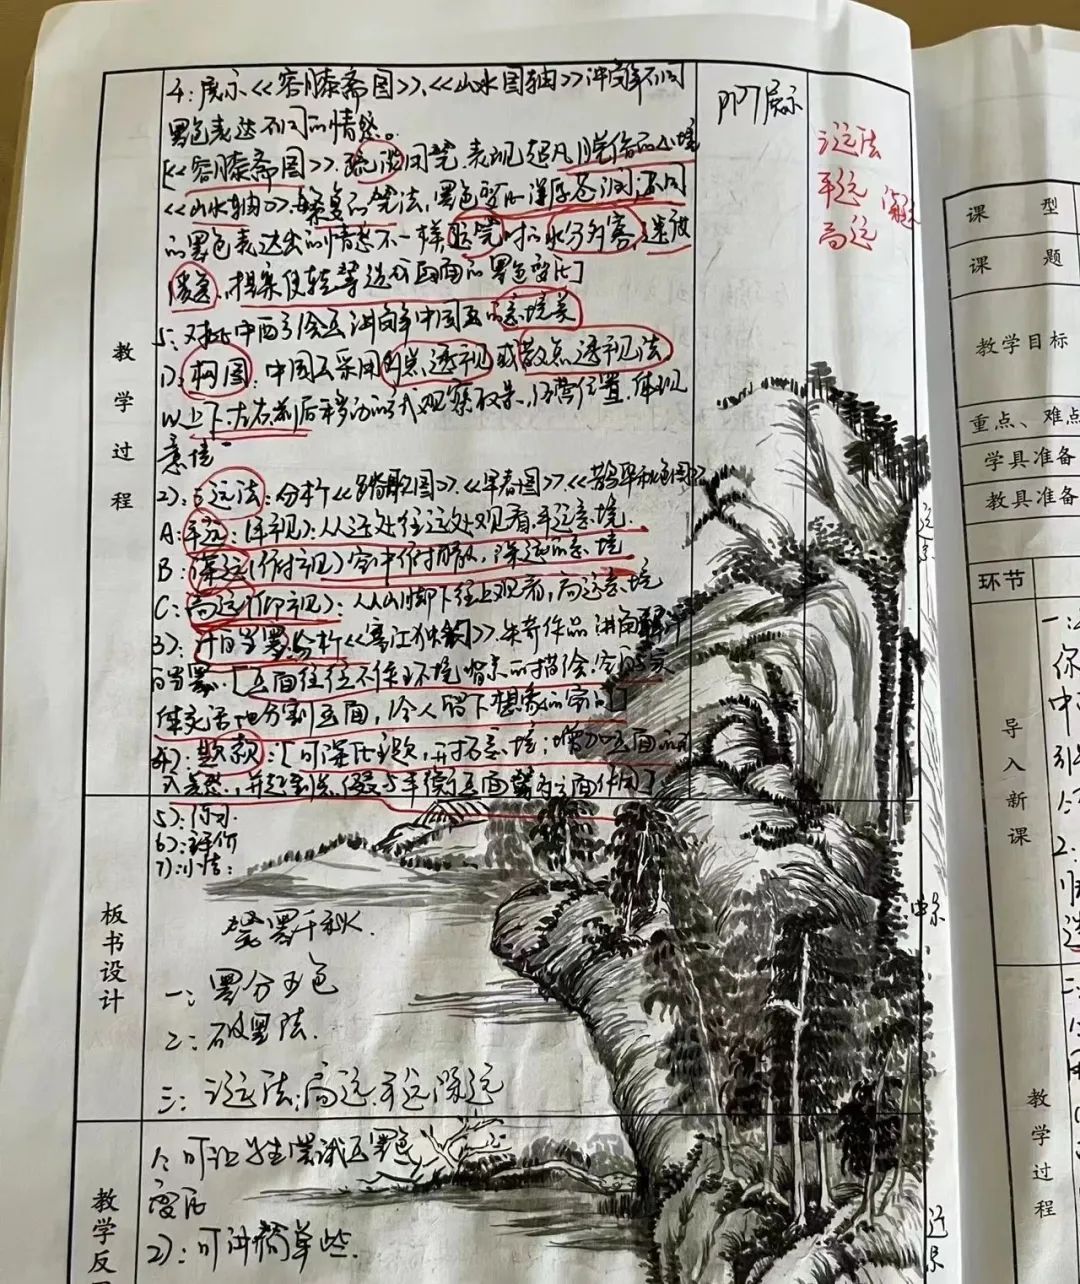 4:展示《容膝斋图》、《山水图轴》讲简单不同
墨色表达不同的情感。
[《容膝斋图》.疏淡用笔.表现超凡
《山水轴》.繁复的笔法,墨色变化浑厚苍润:不同
的墨色表达出的情感不一样 时的水分
墨色变化]
5:对比中西方绘画讲解中国画的意境美
1):构图:中国画采用多点透视或散点透视法
以上下.左右.前后移动的方式观察取景,经营位置.体现
意境
2):三远法:分析《踏歌图》.《早春图》.《鹊华秋色图》
A:平远:(平视):从近处往远处观看.平远意境
B:深远(俯视)空中俯瞰,深远的意境
C:高远(仰视):从山脚下往上观看,高远意境
3):计白当黑:分析《寒江独钓》.朱耷作品
当黑.[画面往往不作环境背景的描绘.
分割画面,令人留下想象的空间]
4):题款:[可深化主题,开拓意境:增加画面的形
式美感,并起到 平衡画面 作用]
5):练习.
6):评价
7):小结:
PPT展示
三远法
平远 深远
高远
教学过程
板书设计
笔墨千秋.
一:墨分五色
二:破墨法.
三:三远法:高远.平远.深远
教学反
1:可让学生尝试画墨色
变化
2):可讲简单些.
远景
中景
近景
课型
课题
教学目标
重点、难点
学具准备
教具准备
环节
导入新课
教学过程
一:
你
中
2: